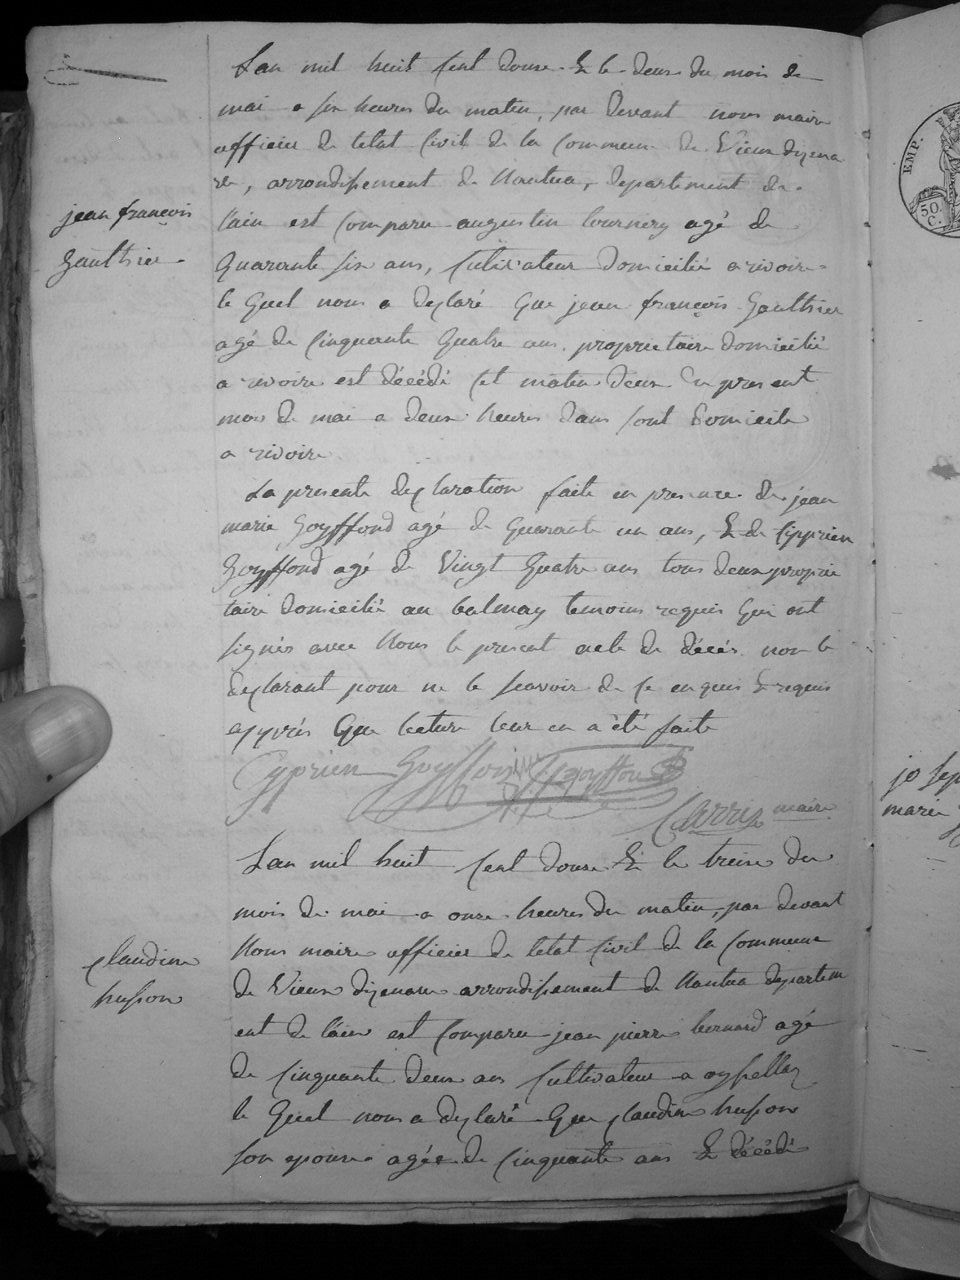 Lan mil huit Cent douze & le deux du mois de
mai a six heures du matin, par devant nous maire
officier de letat Civil de la Commune de Vieux dizena
ve, arrondissement de Nantua, departement de
lain est Comparu augustin tournery agé de
Quarante six ans, Cultivateur domicilié a rivoire
le Quel nous a declaré Que jean françois Gauthier
agé de Cinquante Quatre ans proprietaire domicilié
a rivoire est décédé Cet matin deux du present
mois de mai a deux heures dans sont domicile
a rivoire
jean françois
Gauthier
La presente declaration faite en presence de jean
marie Goyffond agé de Quarante un ans, & de Cipprien
Goyffond agé de Vingt Quatre ans tous deux proprie
taire domicilié au balmay temoins requis Qui ont
signés avec Nous le present acte de décés non le
declarant pour ne le scavoir de Ce enquis & requis
apprés Que lecture leur en a été faite
Cyprien Goyffon Goyffond
Carrier maire
Lan mil huit Cent douze & le treize du
mois de mai a onze heures du matin, par devant
Nous maire officier de letat Civil de la Commune
de Vieux dizenave arrondissement de Nantua departem
ent de lain est Comparu jean pierre bernard agé
de Cinquante deux ans Cultivateur a oyssellaz
le Quel nous a declaré Que Claudine husson
son epouse agée de Cinquante ans & décédé
Claudine
husson
EMP.
50
C.
jo sep
marie